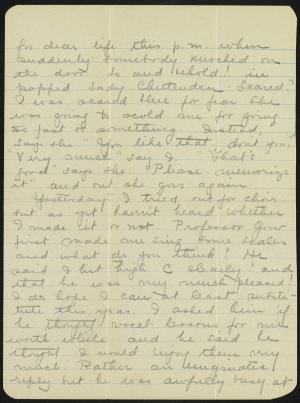 for dear life this p.m. when
suddenly somebody knocked on
the door. Lo and behold! in
popped Lady Chittenden. Scared?
I was scared blue for fear she
was going to scold me for going
too fast or something. Instead,
says she "You like that don't you"
"Very much" say I. "That's
good" says she. "Please memorize
it" and out she goes again.
Yesterday I tried out for choir
but as yet havn't heard whether
I made it or not. Professor Gow
first made me sing some scales
and what do you think! He
said I hit high C clearly and
that he was very much pleased!
I do hope I can at least substi-
tute this year. I asked him if
he thought vocal lessons for me
worth while and he said he
thought I would enjoy them very
much. Rather an
reply but he was awfully busy at